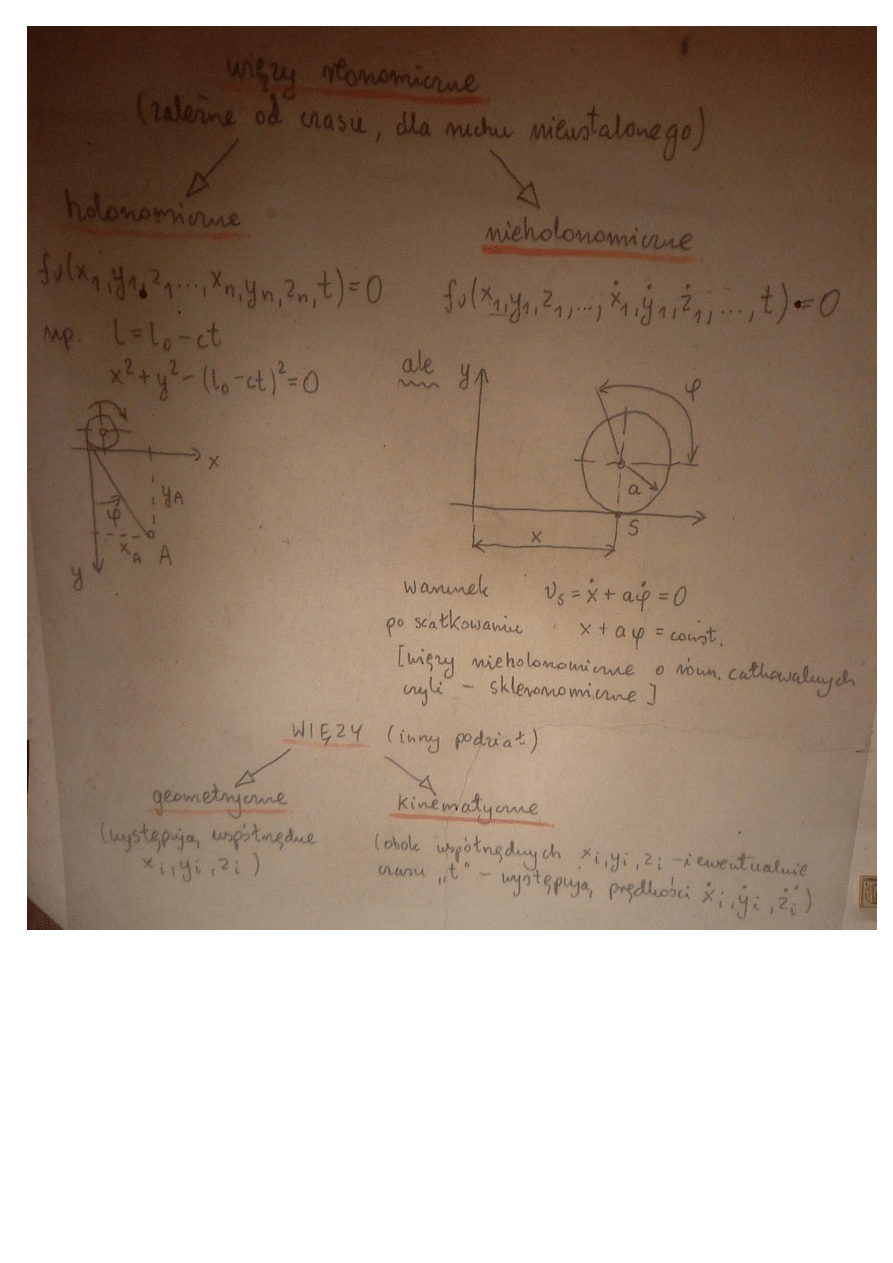 więzy reonomiczne
(zależne od czasu, dla ruchu nieustalonego)
holonomiczne
fν(x₁,y₁,z₁...,xₙ,yₙ,zₙ,t)=0
np. l=l₀-ct
x²+y²-(l₀-ct)²=0
x
y_A
φ
x_A A
y
nieholonomiczne
fν(x₁,y₁,z₁,...,ẋ₁,ẏ₁,ż₁,...,t)=0
ale
y
φ
a
S
x
warunek υₛ=ẋ+aφ̇=0
po scałkowaniu x+aφ=const.
[więzy nieholonomiczne o równ. całkowalnych
czyli - skleronomiczne]
WIĘZY (inny podział)
geometryczne
(występują współrzędne
xᵢ,yᵢ,zᵢ)
kinematyczne
(obok współrzędnych xᵢ,yᵢ,zᵢ - i ewentualnie
czasu „t” - występują prędkości ẋᵢ,ẏᵢ,żᵢ)